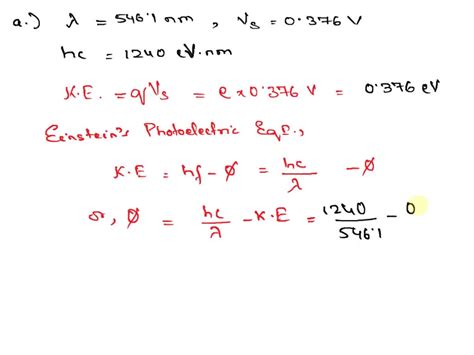 a.) λ = 546.1 nm , Vs = 0.376 V
hc = 1240 eV.nm
K.E. = qVs = e x 0.376 V = 0.376 eV
Eeinstein's Photoelectric Eqn.,
K.E = hf - Ø = hc/λ - Ø
or, Ø = hc/λ - K.E = 1240/546.1 - 0